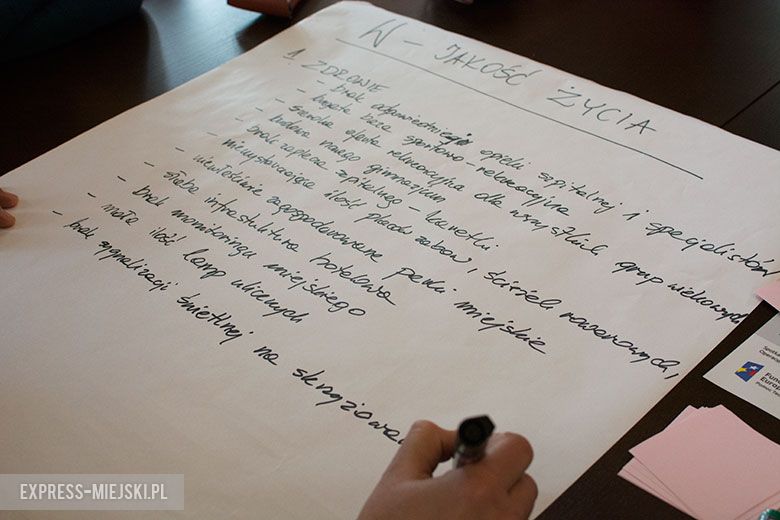 W - JAKOŚĆ ŻYCIA
1. ZDROWIE
- brak odpowiedniego opieki szpitalnej i specjalistów
- bogata baza sportowo - rekreacyjna
- szeroka oferta rekreacyjna dla wszystkich grup wiekowych
- budowa nowego gimnazjum
- brak zaplecza szpitalnego - karetki
- niewystarczająca ilość placów zabaw, ścieżek rowerowych,
- niewłaściwie zagospodarowane parki miejskie
- słaba infrastruktura hotelowa
- brak monitoringu miejskiego
- mała ilość lamp ulicznych
- brak sygnalizacji świetlnej na skrzyżowa
EXPRESS-MIEJSKI.PL
Fun
Europ